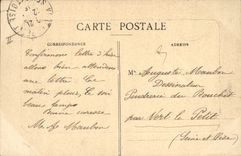 CARTE POSTALE
CORRESPONDANCE
ADRESSE
Confirmons lettre d'hier
allons bien attendons
une lettre. Ce
matin pluie, ce soir
beau temps
Bonne caresses
M et Maubon
Mr Auguste Maubon
Dessinateur
Poudrerie du Bouchet
par Vert le Petit
(Seine et Oise)